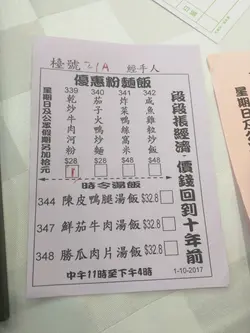 檯號 21A 經手人
優惠粉麵飯
339 340 341 342
乾炒牛肉河粉
茄子鴨絲炆米粉
炸菜肉絲湯麵
咸魚雞粒炒飯
$28 $28 $32.8 $32.8
1
星期日及公眾假期另加拾元
段段張經濟，價錢回到十年前
時令湯飯
344 陳皮鴨腿湯飯 $32.8
347 鮮茄牛肉湯飯 $32.8
348 勝瓜肉片湯飯 $32.8
中午11時至下午4時
1-10-2017